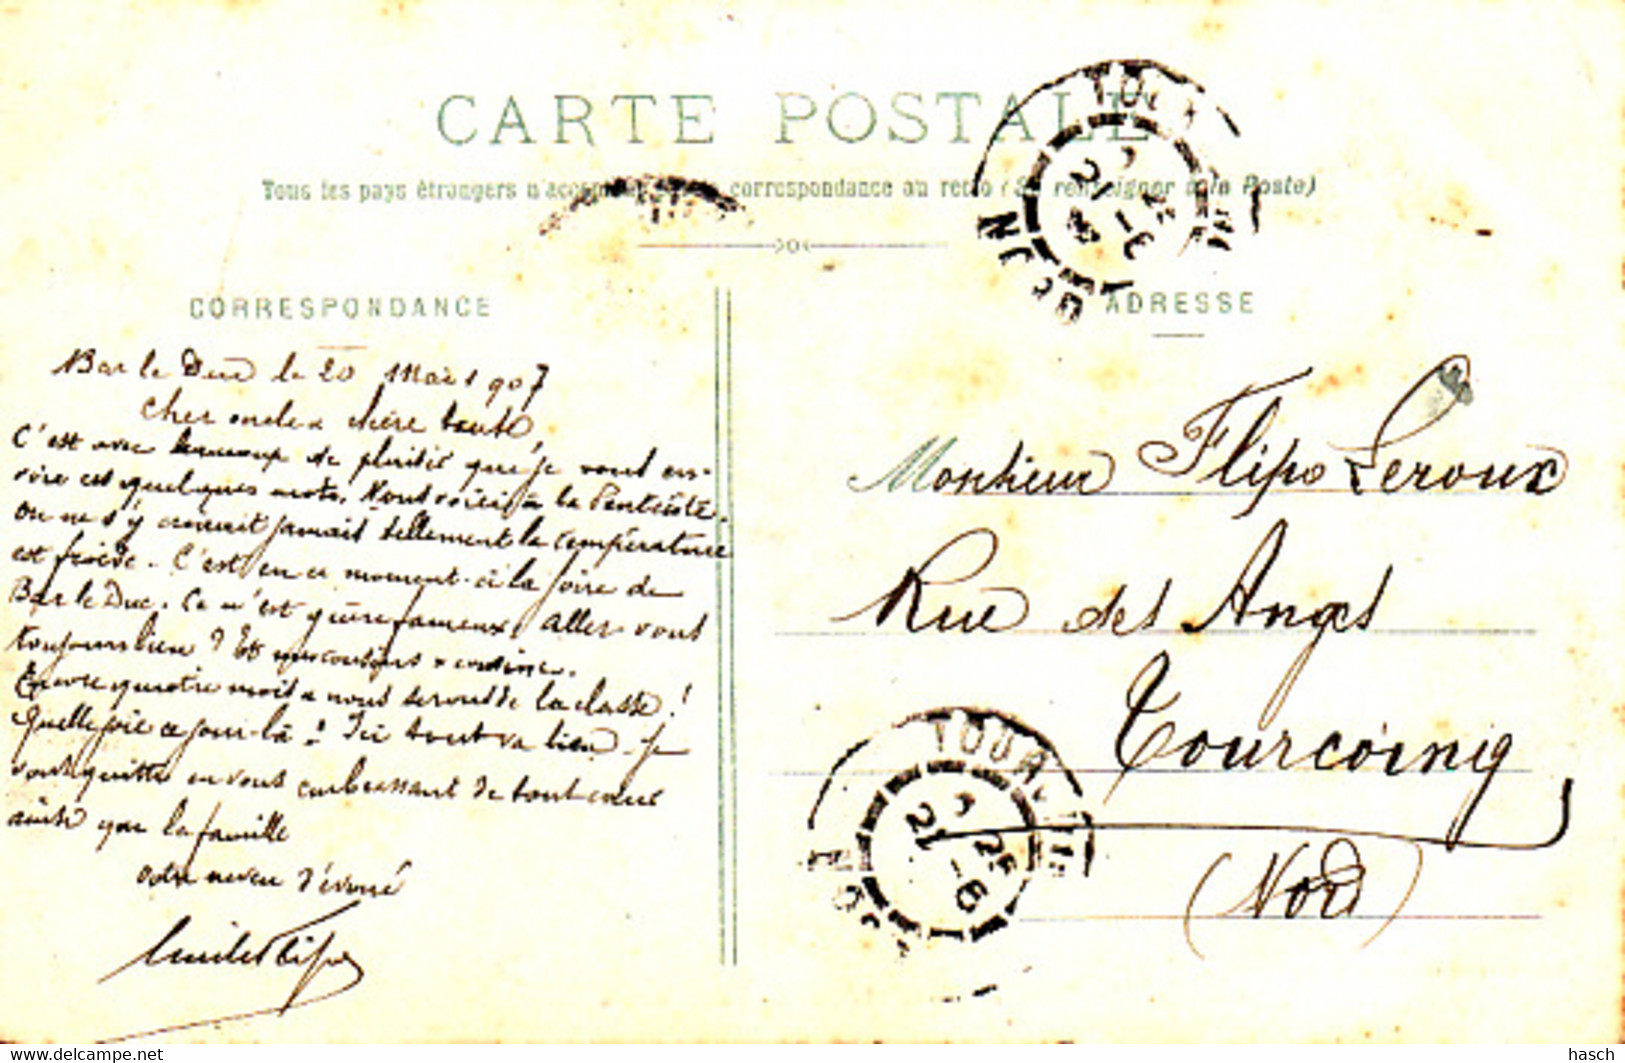 CARTE POSTALE
Tous les pays étrangers n'acceptent correspondance au recto (Se renseigner à la Poste)
CORRESPONDANCE
Bar le Duc le 20 Mai 1907
Cher oncle & chère tante
C'est avec beaucoup de plaisir que je vous en-
voie ces quelques mots. Nous voici à la Pentecôte.
On ne s'y croirait jamais tellement la température
est froide. C'est en ce moment-ci la foire de
Bar le Duc. Ce n'est guère fameux. Allez vous
toujours bien ? Et mes cousins & cousine.
Encore quatre mois & nous serons de la classe !
Quelle joie ce jour-là ! Ici tout va bien. Je
vous quitte en vous embrassant de tout cœur
ainsi que la famille
votre neveu dévoué
Flipo
ADRESSE
Monsieur Flipo Leroux
Rue des Anges
Tourcoing
(Nord)
TOUR
21 -6
TOUR
21 -6
www.delcampe.net
hasch